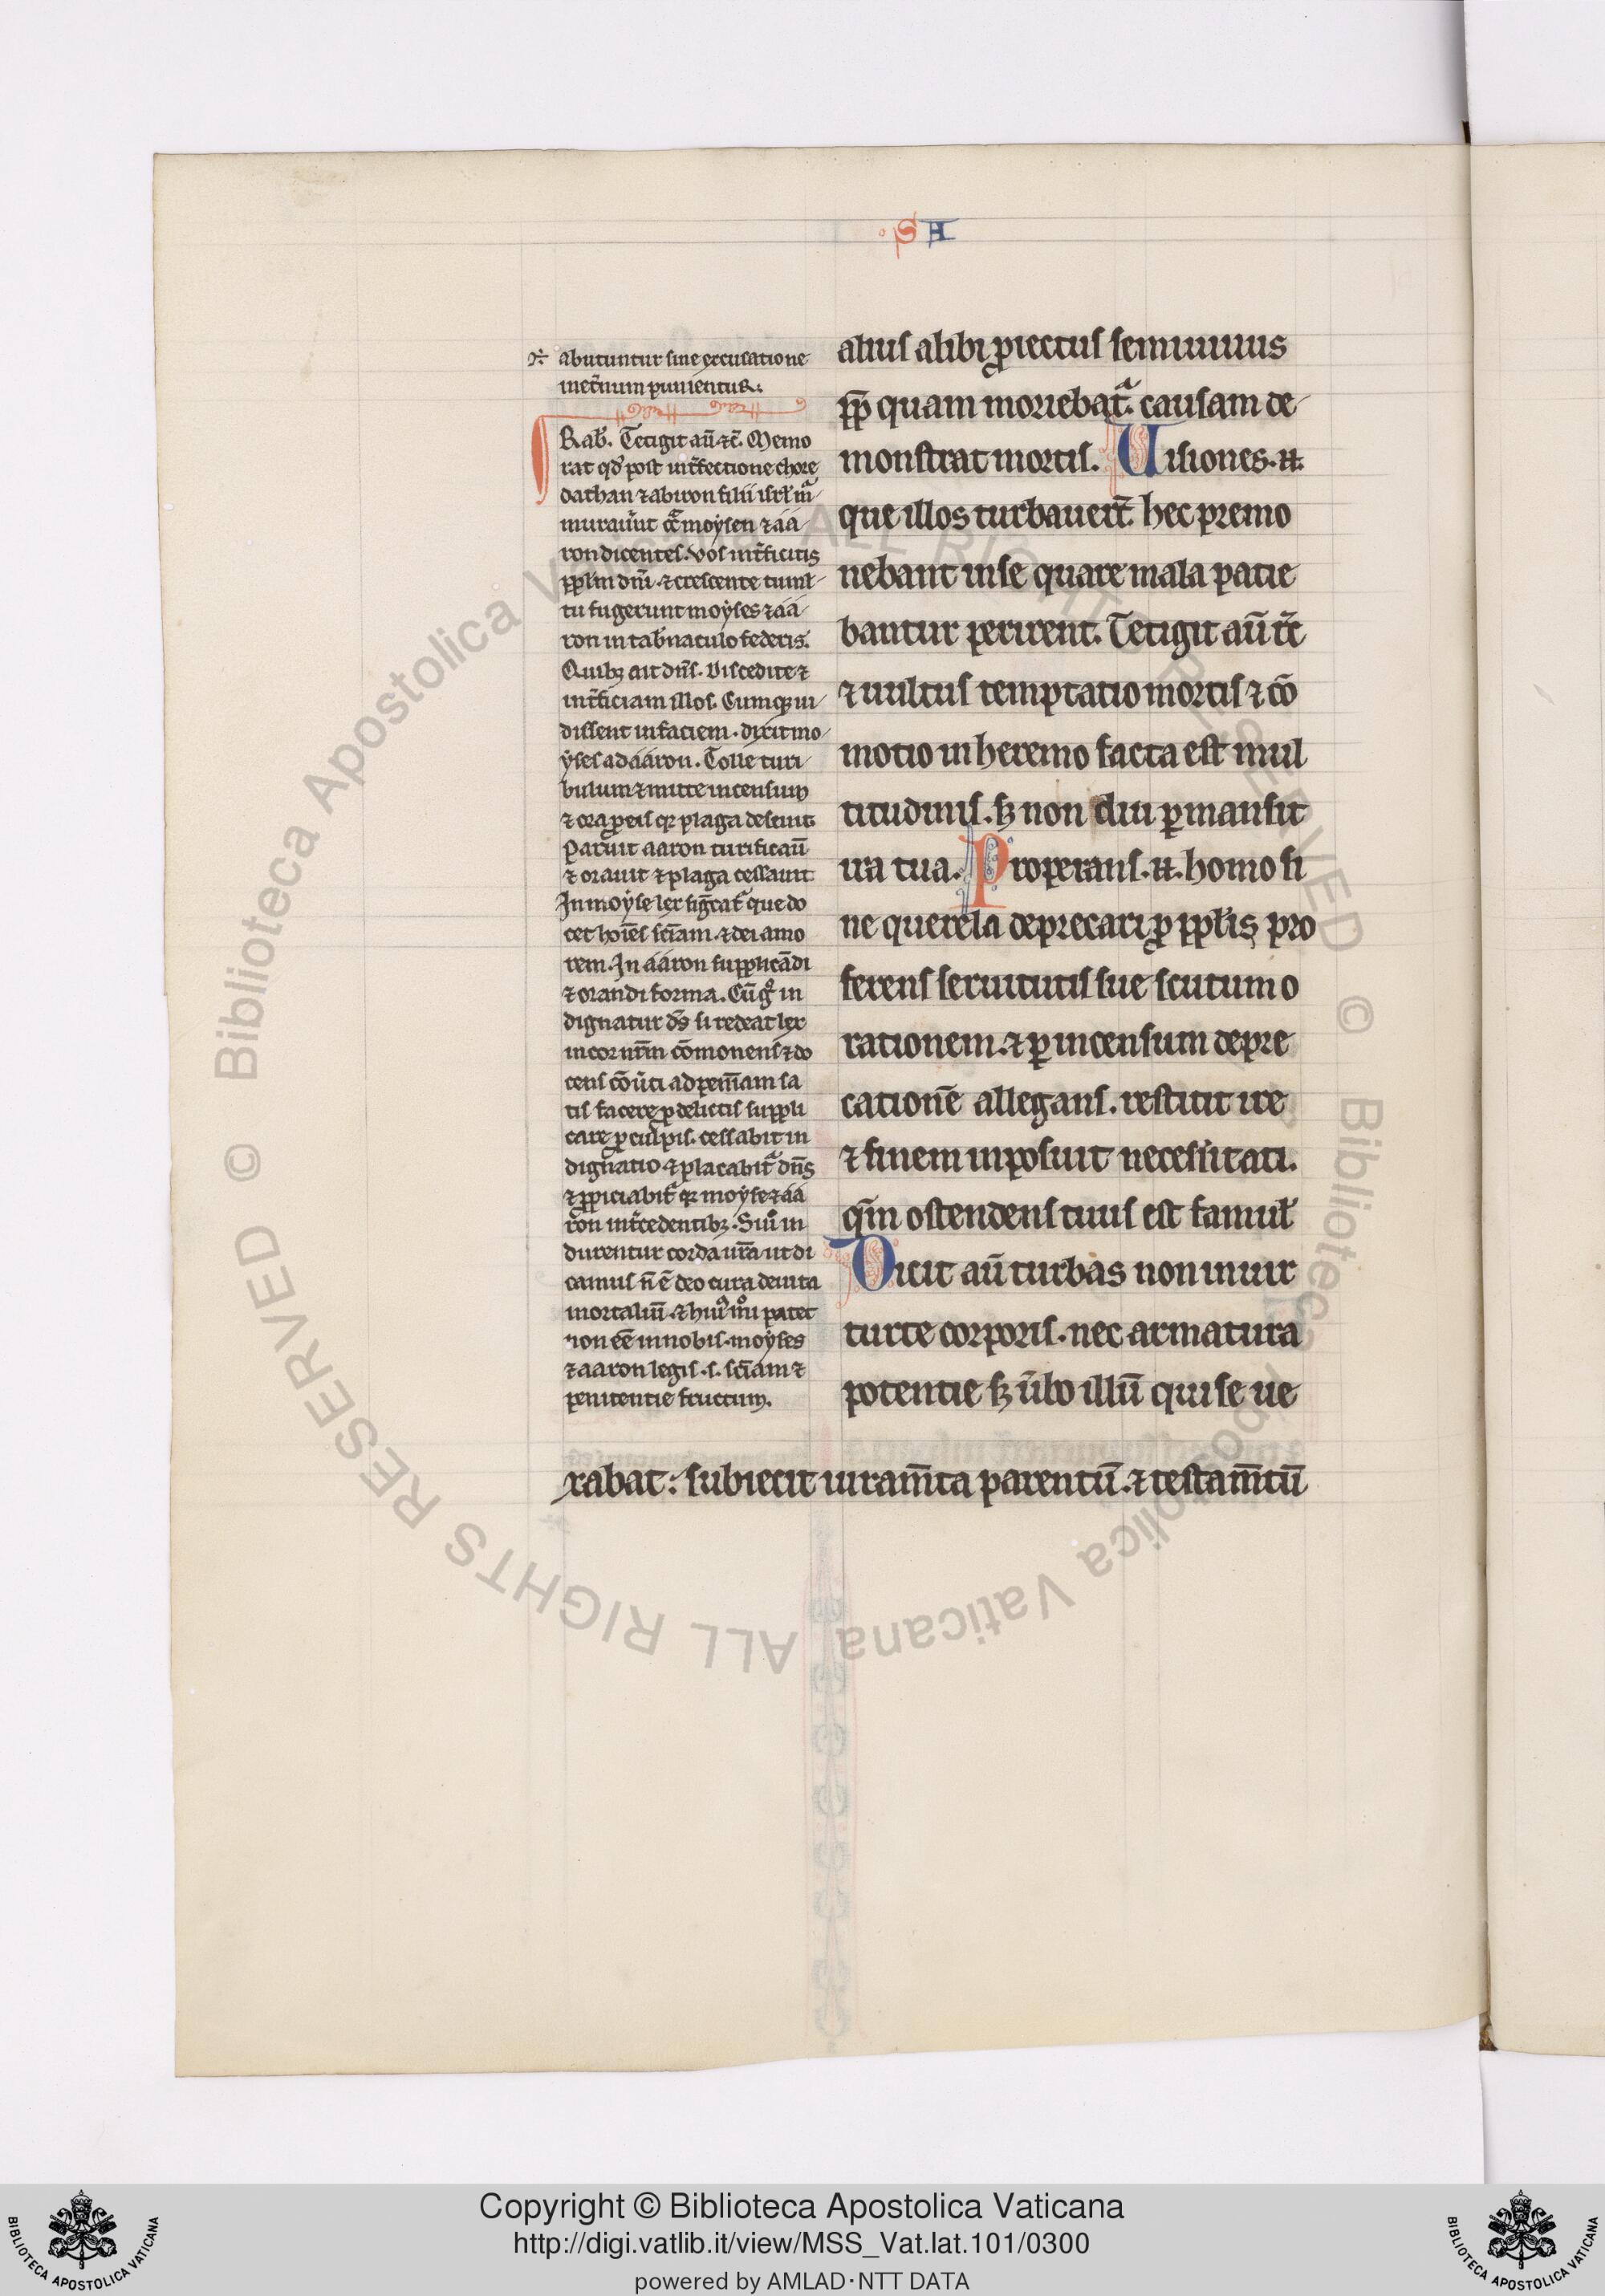 SA
abutuntur sine excusatione
inet̄num punientur.
Rab̄. Tetigit aū ⁊c̄. Memo
rat qd̓ post int̓fectione chore
dathan ⁊ abiron filii isrl̓ m̓
murauer̄t ꝯt̓ moysen ⁊ áá
ron dicentes. Vos int̓ficitis
ppl̓m dn̄i. ⁊ crescente tumł
tu fugerunt moẏses ⁊ áá
ron in tab̓naculo federis.
Quibꝫ ait dn̄s. Discedite ⁊
int̓ficiam illos. Cumqꝫ ui
dissent infaciem. dixit mo
ẏses ad ááron. Tolle turi
bulum ⁊ mitte incensum
⁊ ora ꝓ eis qꝛ plaga deseuit
Paruit aaron turificauī
⁊ orauit ⁊ plaga cessauit
In moẏse lex sig̓cat̓ que do
cet hoīes sc̄iam. ⁊ dei amo
rem. In ááron supplicādi
⁊ orandi forma. Cū g̊ in
dignatur ds̄ si redeat lex
in cor nr̄m cōmonens ⁊ do
cens cōuerti ad penīam sa
tis facere ꝓ delictis suppli
care ꝓ culpis. cessabit in
dignatio ⁊ placabit̓ dn̄s
⁊ ꝓpiciabit̓ qꝛ moẏse ⁊ áá
ron int̓cedentibꝫ. Siū in
durentur corda ur̄a ut di
camus n̄ ē deo cura de uita
mortaliū. ⁊ hui᷒mōi patet
non eē in nobis moẏses
⁊ aaron legis .s. sc̄iam ⁊
penitentie fructum.
alius alibi ꝓiectus semiuiuus
pp̄ quam moriebat̓ causam de
monstrat mortis. Visiones. n̄.
que illos turbauer̄t hec premo
nebant inse quare mala patie
bantur perirent. Tetigit aū tc̄
⁊ uultus temptatio mortis ⁊ cō
motio in heremo facta est mul
titudinis. sꝫ non diu ꝑmansit
ira tua. Properans. n̄. homo si
ne querela deprecari ꝓ ppl̓is pro
ferens seruitutis sue scutum o
rationem. ⁊ ꝑ incensum depre
cationē allegans. restitit ire
⁊ finem inposuit necessitati.
qm̄ ostendens tuus est famul̓
Vicit aū turbas non in uir
tute corporis. nec armatura
potentie sꝫ ūbo illū qui se ue
xabat: subiecit iuram̄ta parentū. ⁊ testam̄tū
Copyright © Biblioteca Apostolica Vaticana
http://digi.vatlib.it/view/MSS_Vat.lat.101/0300
powered by AMLAD·NTT DATA
BIBLIOTECA APOSTOLICA VATICANA
BIBLIOTECA APOSTOLICA VATICANA
© Biblioteca Apostolica Vaticana ALL RIGHTS RESERVED
© Biblioteca Apostolica Vaticana ALL RIGHTS RESERVED